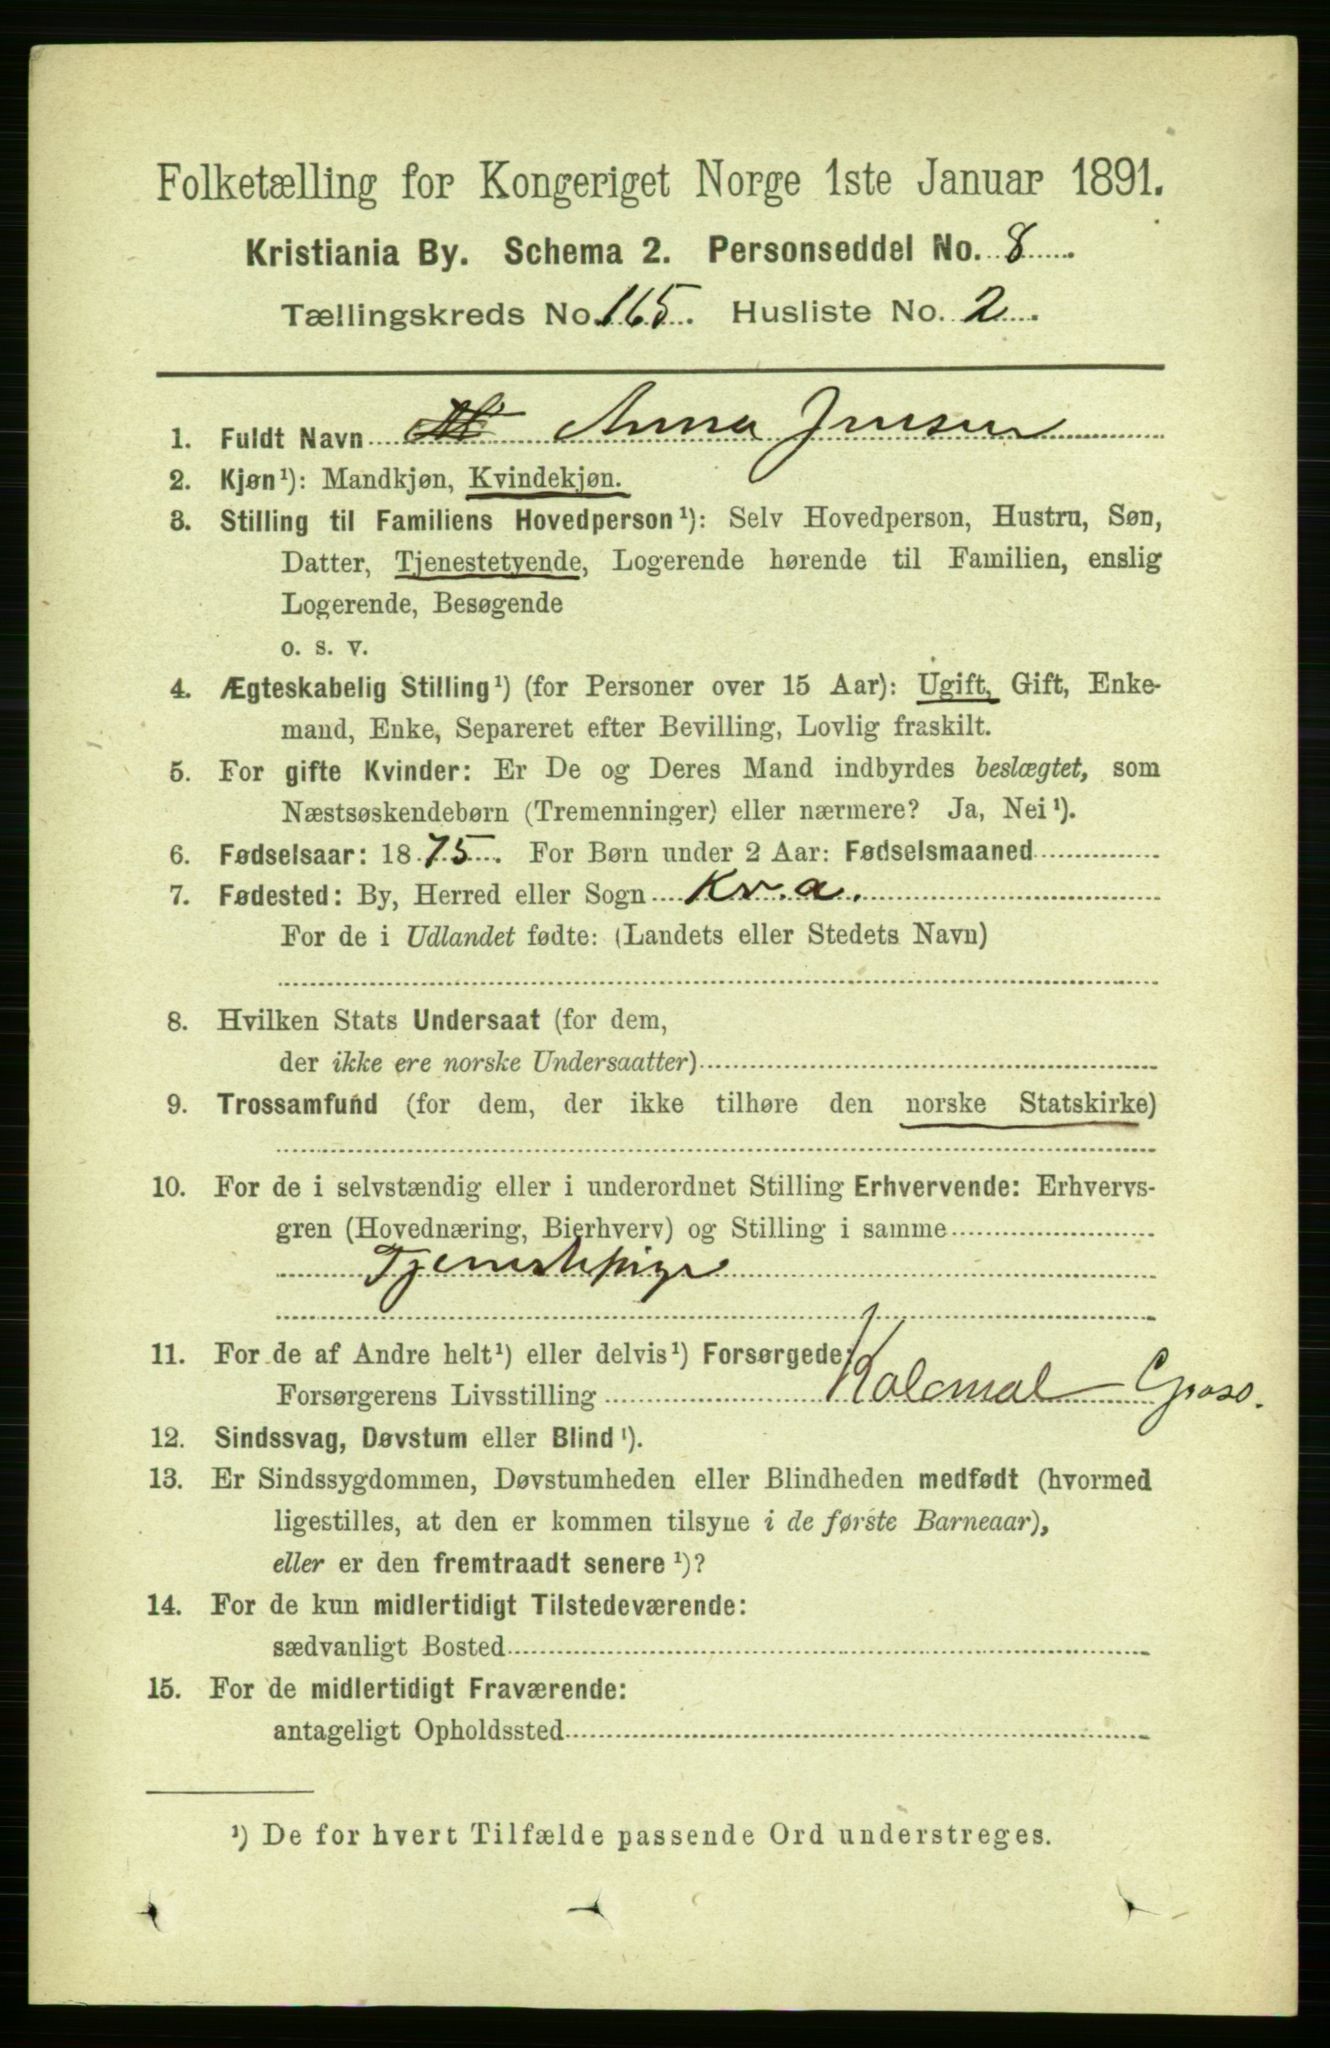 Folketælling for Kongeriget Norge 1ste Januar 1891.
Kristiania By. Schema 2. Personseddel No. 8
Tællingskreds No. 165. Husliste No. 2
1. Fuldt Navn Anna Jensen
2. Kjøn¹): Mandkjøn, Kvindekjøn.
3. Stilling til Familiens Hovedperson¹): Selv Hovedperson, Hustru, Søn,
Datter, Tjenestetyende, Logerende hørende til Familien, enslig
Logerende, Besøgende
o. s. v.
4. Ægteskabelig Stilling¹) (for Personer over 15 Aar): Ugift, Gift, Enke-
mand, Enke, Separeret efter Bevilling, Lovlig fraskilt.
5. For gifte Kvinder: Er De og Deres Mand indbyrdes beslægtet, som
Næstsøskendebørn (Tremenninger) eller nærmere? Ja, Nei¹).
6. Fødselsaar: 1875. For Børn under 2 Aar: Fødselsmaaned
7. Fødested: By, Herred eller Sogn Kr.a.
For de i Udlandet fødte: (Landets eller Stedets Navn)
8. Hvilken Stats Undersaat (for dem,
der ikke ere norske Undersaatter)
9. Trossamfund (for dem, der ikke tilhøre den norske Statskirke)
10. For de i selvstændig eller i underordnet Stilling Erhvervende: Erhvervs-
gren (Hovednæring, Bierhverv) og Stilling i samme
Tjenestepige
11. For de af Andre helt¹) eller delvis¹) Forsørgede:
Forsørgerens Livsstilling Kolonial-Gross.
12. Sindssvag, Døvstum eller Blind¹).
13. Er Sindssygdommen, Døvstumheden eller Blindheden medfødt (hvormed
ligestilles, at den er kommen tilsyne i de første Barneaar),
eller er den fremtraadt senere¹)?
14. For de kun midlertidigt Tilstedeværende:
sædvanligt Bosted
15. For de midlertidigt Fraværende:
antageligt Opholdssted
¹) De for hvert Tilfælde passende Ord understreges.